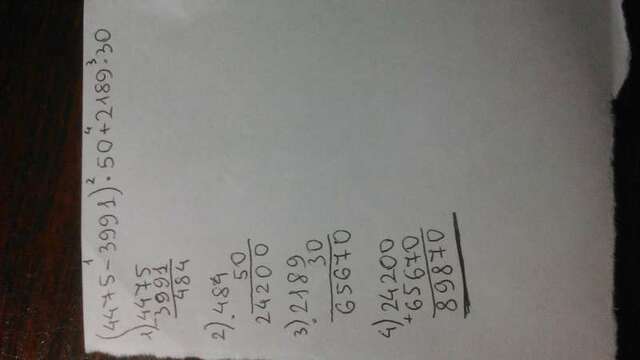 (4475-3991)·50+2189·30
1 2 4 3
1) 4475
- 3991
484
2) 484
· 50
24200
3) 2189
· 30
65670
4) 24200
+ 65670
89870